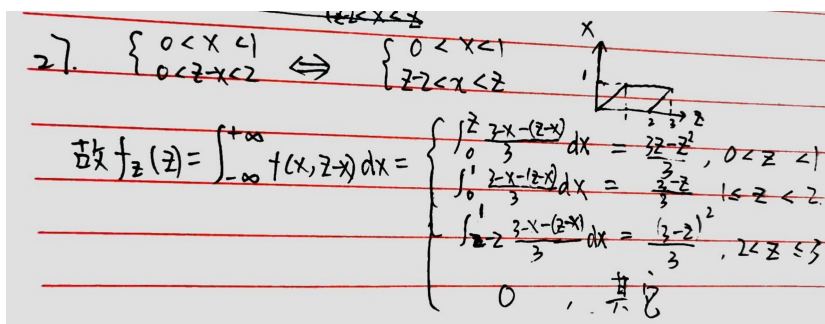 27. { 0<x<1 ⇔ { 0<x<1
0<z-x<2 z-2<x<z
x
1
1 2 3 z
故 f_Z(z) = ∫_{-∞}^{+∞} f(x, z-x) dx = { ∫_0^z \frac{3-x-(z-x)}{3} dx = \frac{3z-z^2}{3}, 0<z<1
∫_0^1 \frac{3-x-(z-x)}{3} dx = \frac{3-z}{3} 1≤z<2
∫_{z-2}^1 \frac{3-x-(z-x)}{3} dx = \frac{(3-z)^2}{3}, 2<z≤3
0 , 其它